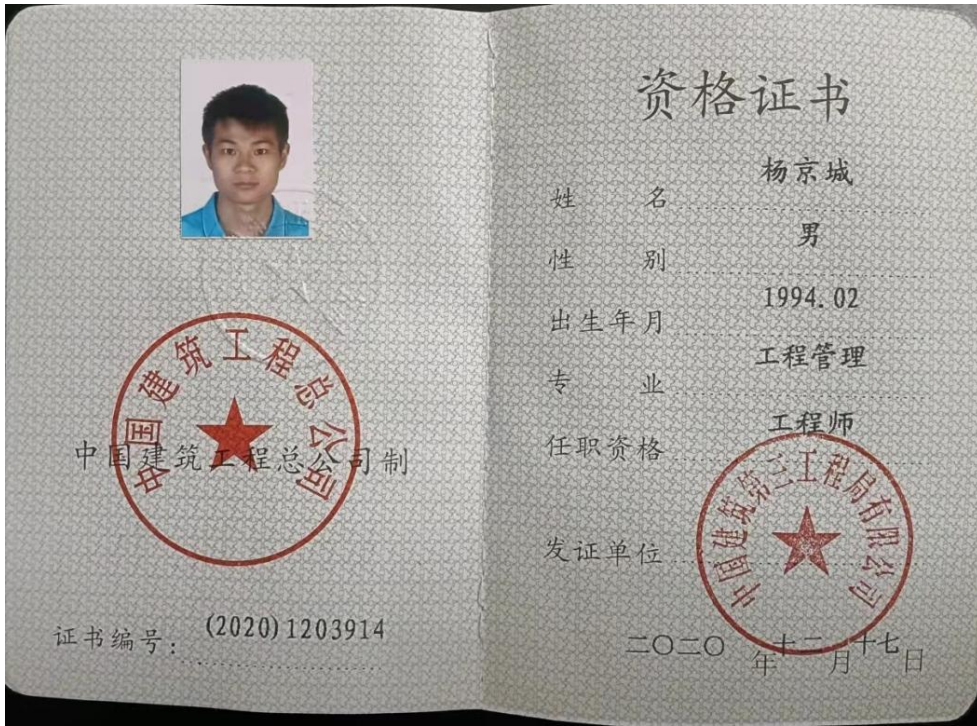 中国建筑工程总公司
中国建筑工程总公司制
证书编号：(2020)1203914
资格证书
姓 名 杨京城
性 别 男
出生年月 1994.02
专 业 工程管理
任职资格 工程师
发证单位
中国建筑第三工程局有限公司
二〇二〇年十二月十七日